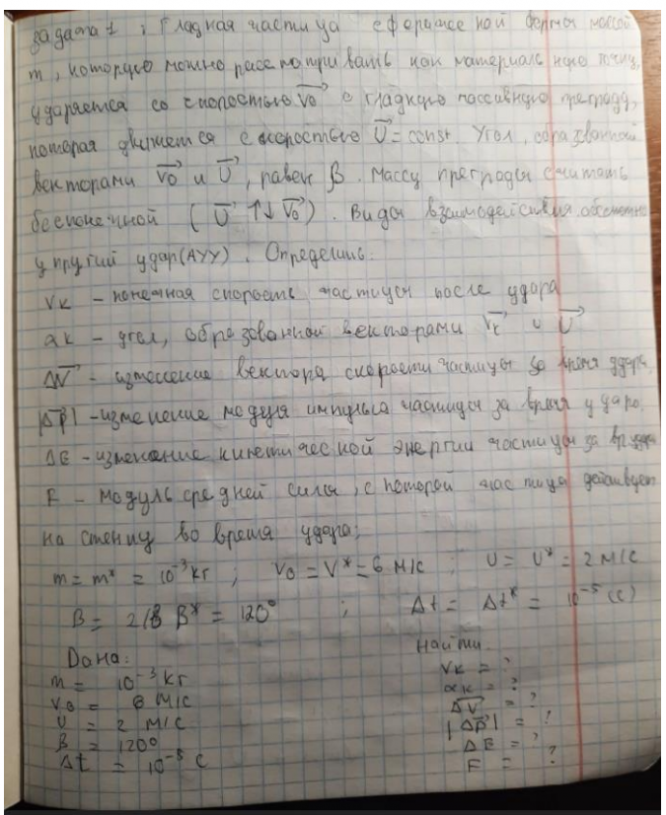 задача 1 : Гладкая частица сферической формы массой
m, которую можно рассматривать как материальную точку,
ударяется со скоростью V0 о гладкую массивную преграду,
которая движется с скоростью U = const. Угол, образованной
векторами V0 и U, равен β. Массу преграды считать
бесконечной ( U ↑↓ V0 ). Виды взаимодействия абсолютно
упругий удар(АУУ). Определить:
Vк - конечная скорость частицы после удара
αк - угол, образованной векторами Vк и U
ΔV - изменение вектора скорости частицы за время удара
|ΔP| - изменение модуля импульса частицы за время удара
ΔE - изменение кинетической энергии частицы за вр удара
F - модуль средней силы, с которой частица действует
на стенку во время удара;
m = m* = 10⁻³ кг ; V0 = V* = 6 м/с ; U = U* = 2 м/с
β = 2/3 β* = 120° ; Δt = Δt* = 10⁻⁵ (с)
Дано: Найти:
m = 10⁻³ кг Vк = ?
V0 = 6 м/с αк = ?
U = 2 м/с ΔV = ?
β = 120° |ΔP| = ?
Δt = 10⁻⁵ с ΔE = ?
F = ?